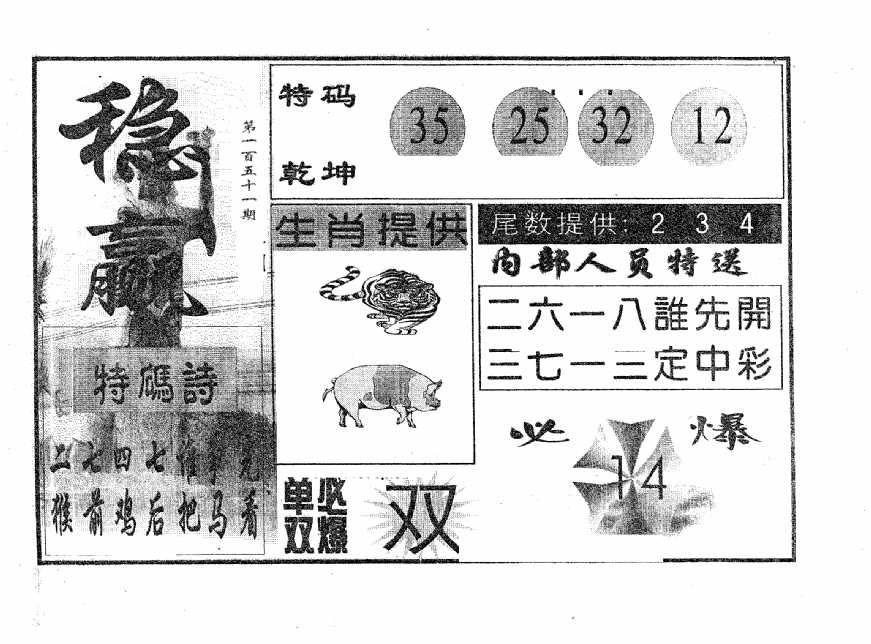 稳赢
第一百五十一期
特码詩
二七四七谁 元
猴前鸡后把马看
特码
乾坤
35 25 32 12
生肖提供
尾数提供: 2 3 4
内部人员特送
二六一八誰先開
三七一三定中彩
必爆
14
单双
必爆
双